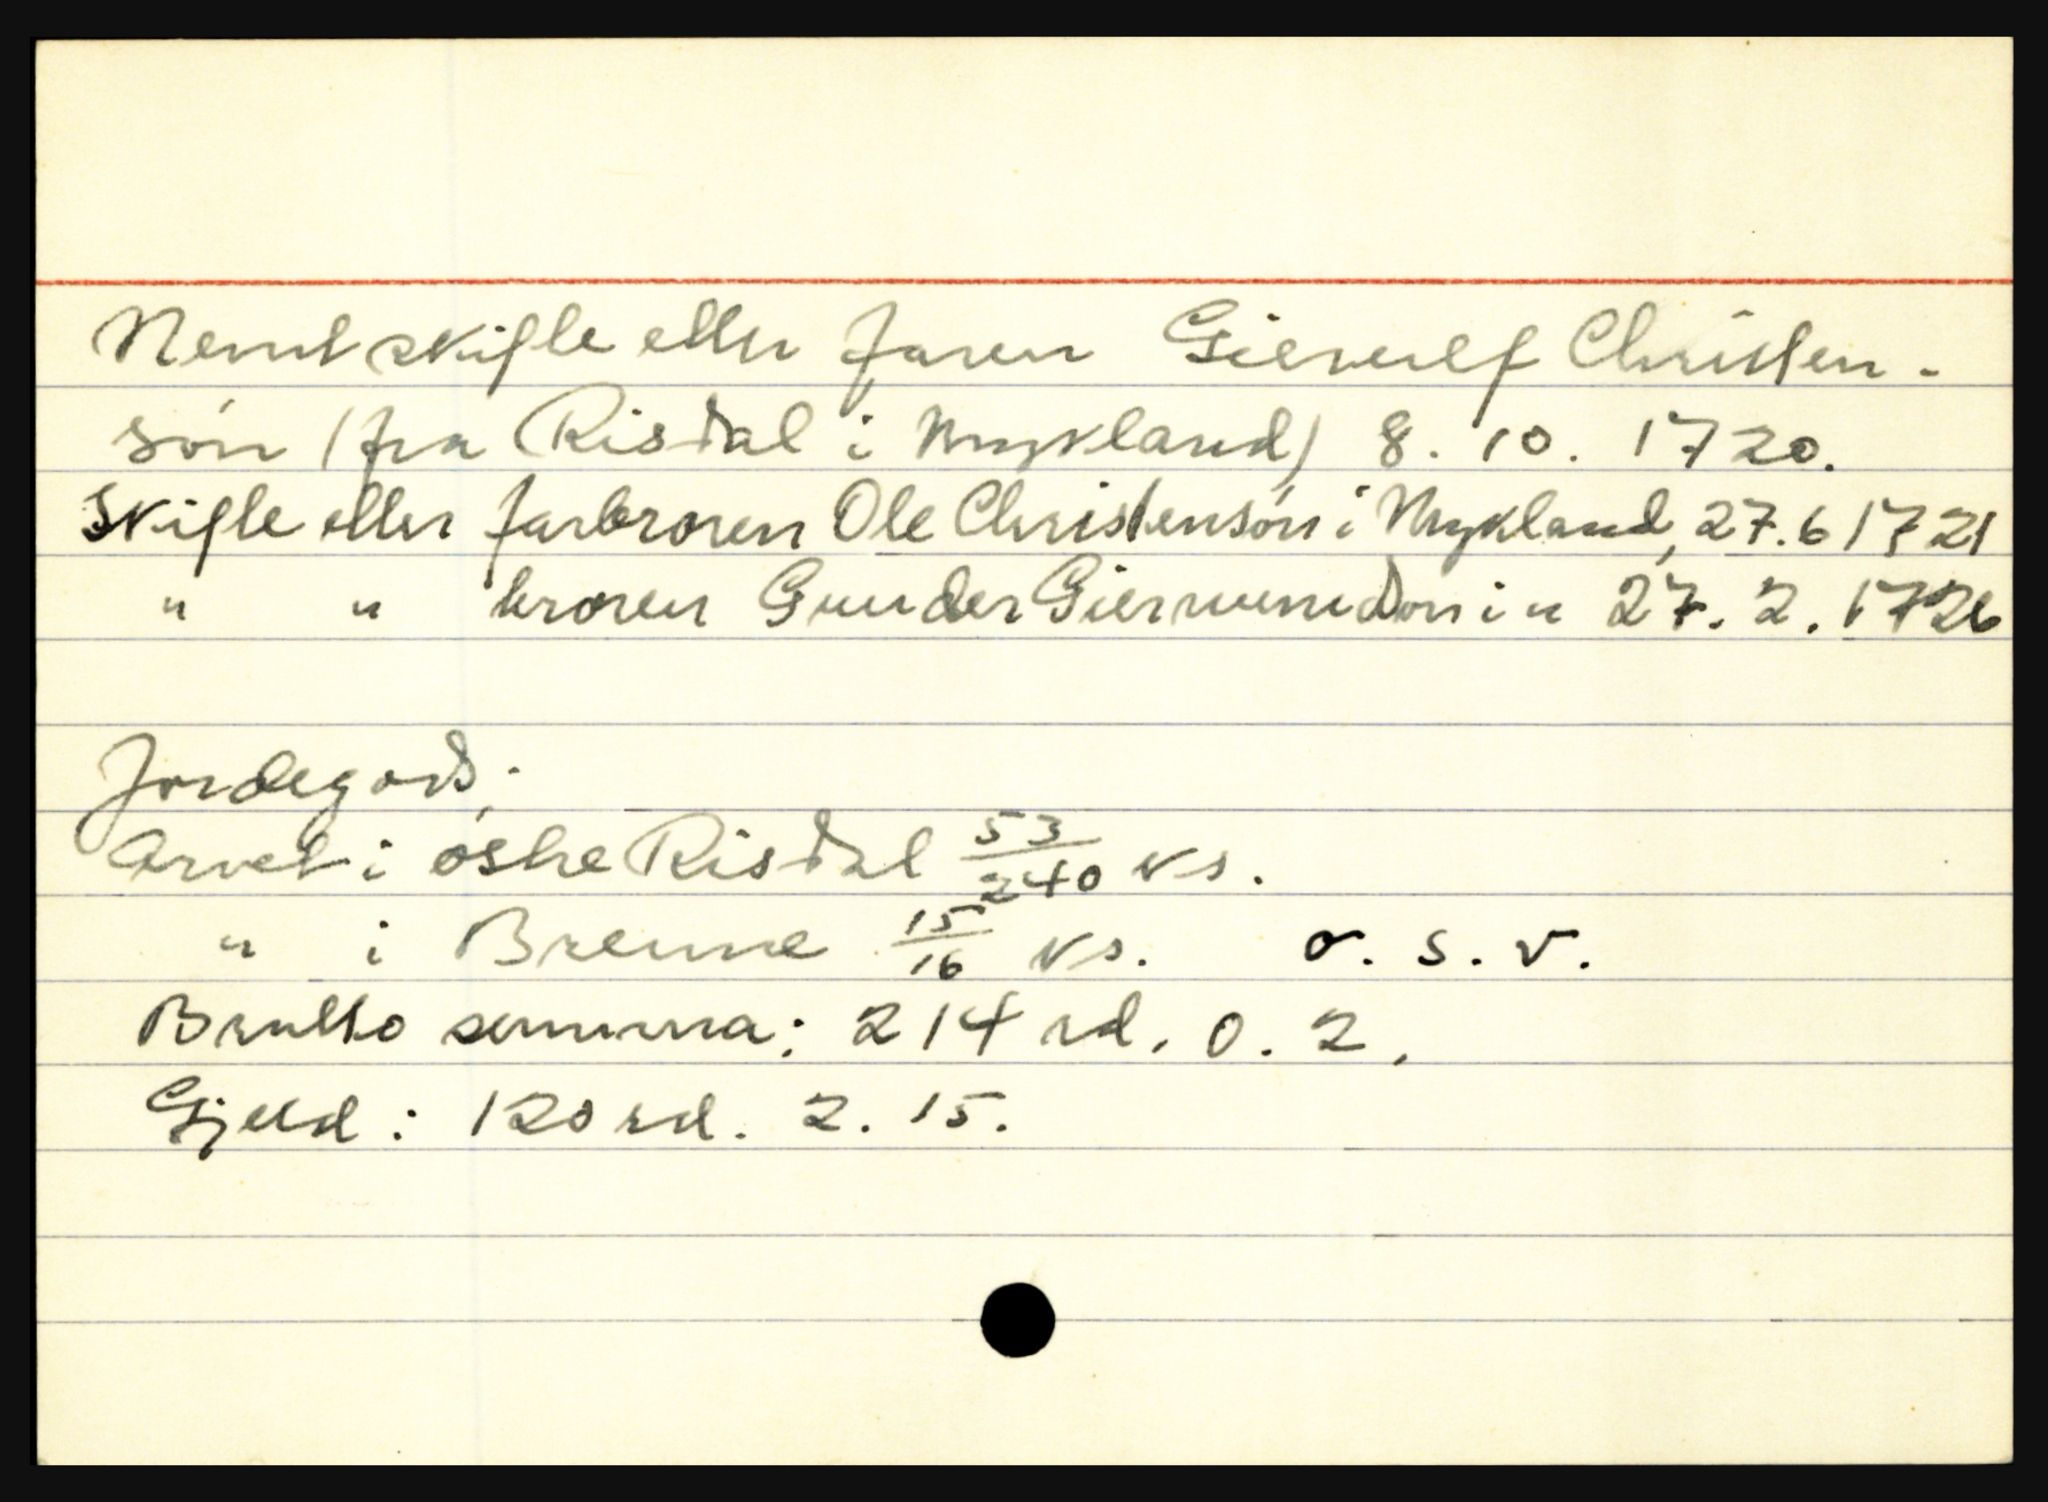 Nemt skifte etter faren Gierulf Christen-
søn (fra Risdal i Mykland) 8. 10. 1720.
Skifte etter farbroren Ole Christensøn i Mykland, 27.6 1721
" " broren Gunder i " 27. 2. 1726
Jordegods:
Arvet i østre Risdal 53/240 ks.
" i Brenne 15/16 ks. o. s. v.
Brutto summa: 214 rd. 0. 2.
Gjeld: 120 rd. 2. 15.